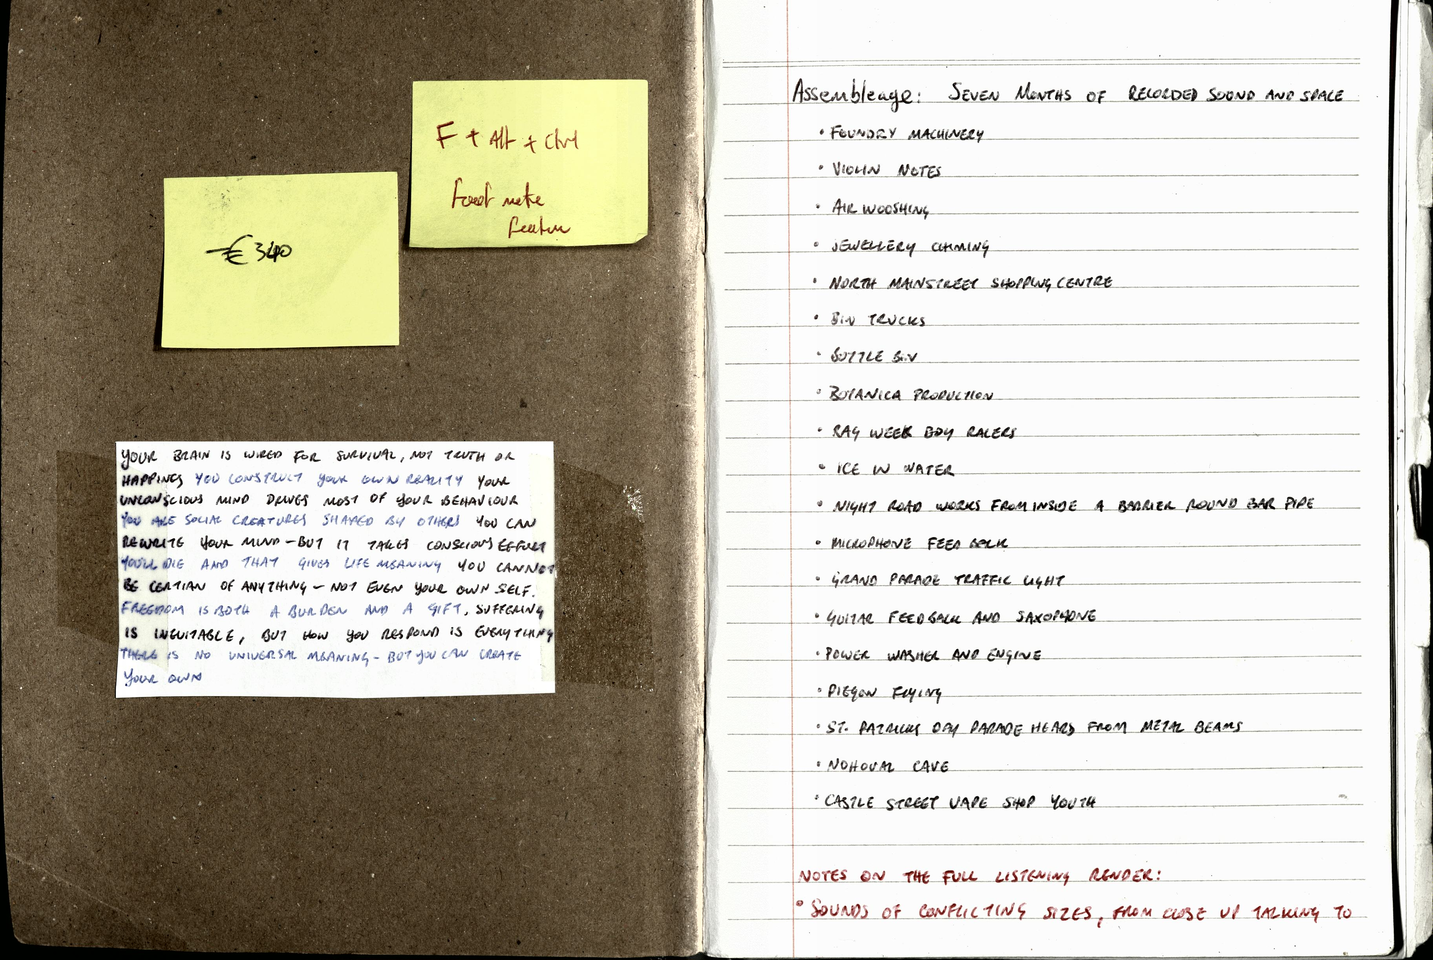 F + Alt + Ctrl
foot note
€340
YOUR BRAIN IS WIRED FOR SURVIVAL, NOT TRUTH OR
HAPPINES YOU CONSTRUCT YOUR OWN REALITY YOUR
UNCONSCIOUS MIND DRIVES MOST OF YOUR BEHAVIOUR
YOU ARE SOCIAL CREATURES SHAPED BY OTHERS YOU CAN
REWRITE YOUR MIND – BUT IT TAKES CONSCIOUS EFFORT
YOU'LL DIE AND THAT GIVES LIFE MEANING YOU CANNOT
BE CERTIAN OF ANYTHING – NOT EVEN YOUR OWN SELF.
FREEDOM IS BOTH A BURDEN AND A GIFT, SUFFERING
IS INEVITABLE, BUT HOW YOU RESPOND IS EVERYTHING
THERE IS NO UNIVERSAL MEANING – BUT YOU CAN CREATE
YOUR OWN
Assembleage: SEVEN MONTHS OF RECORDED SOUND AND SPACE
• FOUNDRY MACHINERY
• VIOLIN NOTES
• AIR WOOSHING
• JEWELLERY CHIMING
• NORTH MAINSTREET SHOPPING CENTRE
• BIN TRUCKS
• BOTTLE BIN
• BOTANICA PRODUCTION
• RAG WEEK BOY RACERS
• ICE IN WATER
• NIGHT ROAD WORKS FROM INSIDE A BARRIER ROUND BAR PIPE
• MICROPHONE FEED BACK
• GRAND PARADE TRAFFIC LIGHT
• GUITAR FEEDBACK AND SAXOPHONE
• POWER WASHER AND ENGINE
• PIEGON FLYING
• ST. PATRICKS DAY PARADE HEARD FROM METAL BEAMS
• NOHOVAL CAVE
• CASTLE STREET VAPE SHOP YOUTH
NOTES ON THE FULL LISTENING RENDER:
• SOUNDS OF CONFLICTING SIZES, FROM CLOSE UP TALKING TO